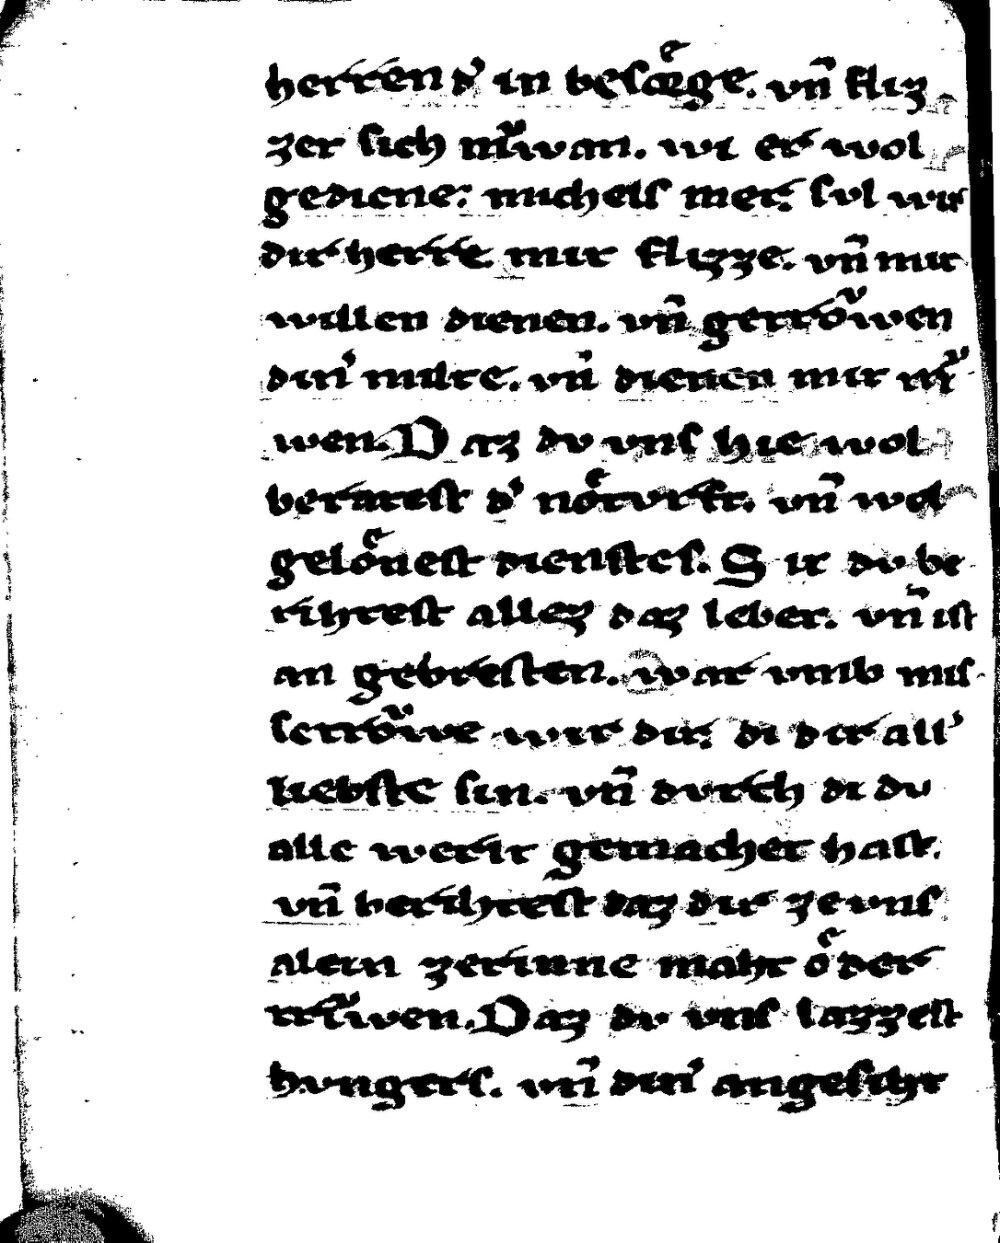 herren d͛ in besoͤrge. vn̄ fliz
zet sich nͥwan. wi er wol
gediene. michels mer sul wir
dir herre mit flizze. vn̄ mit
willen dienen. vn̄ getroͮwen
din͛ milte. vn̄ dienen mit trͥ
wen. Daz du uns hie wol
beratest d͛ noͤturft. vn̄ wol
geloͤnest dienstes. Sit du be
rihtest allez daz leber. vn̄ ist
an gebresten. war umb mis
setroͮwe wir dir di dir all͛
liebste sin. vn̄ durch di du
alle werlt gemachet hast.
vn̄ berihtest daz dir ze uns
alein zerinne maht oͤder
trͥwen. Daz du uns lazzest
hungers. vn̄ din͛ angesiht